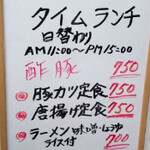 タイムランチ
日替り
AM11:00〜PM15:00
酢豚 750
豚カツ定食 750
唐揚げ定食 750
ラーメン 味噌・しょうゆ ライス付 700